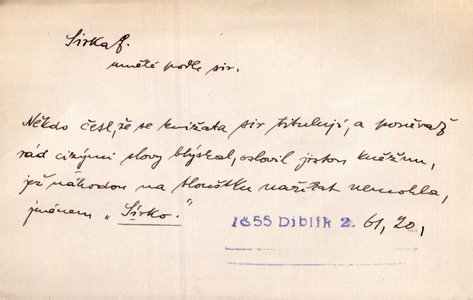 Sirka f.
uměle podle sir.
Někdo četl, že se knížata sir titulují, a poněvadž
rád cizými slovy blýskal, oslovil jistou kněžnu,
jež náhodou na tloušťku nařikat nemohla,
jménem „Sirko."
1855 Diblík 2. 61, 20,